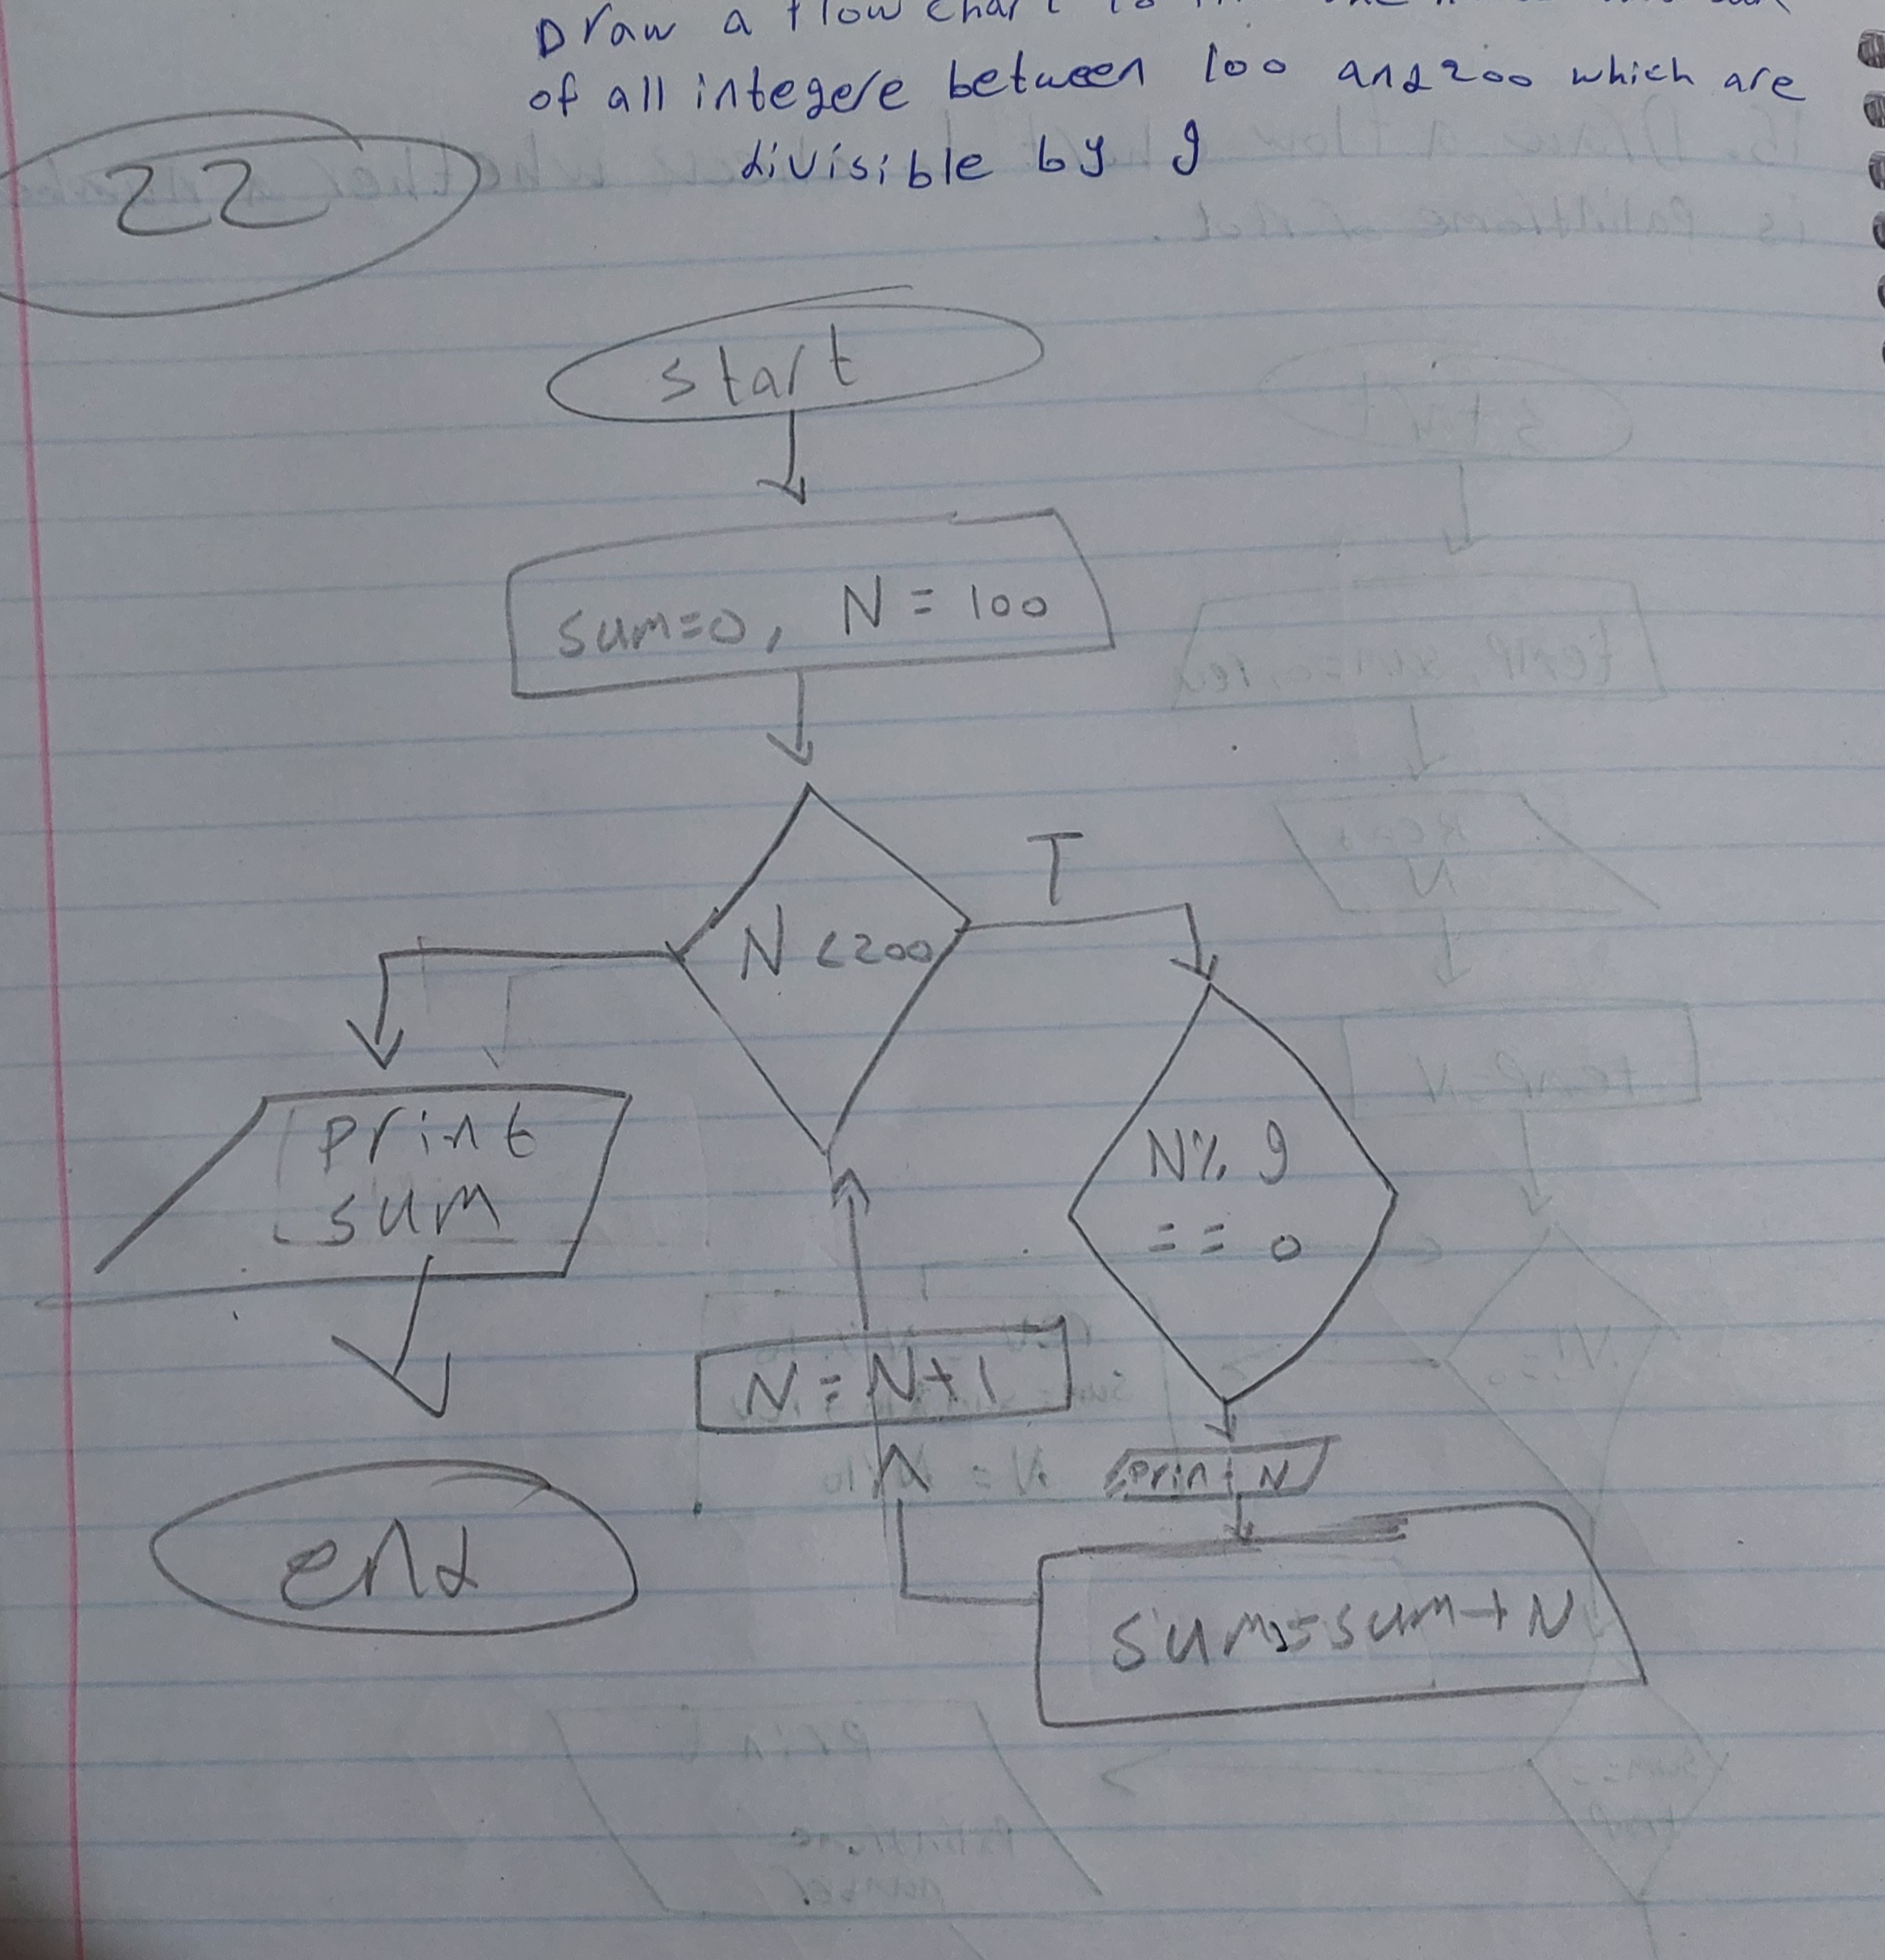 Draw a flow chart
of all integere between 100 and 200 which are
divisible by 9
22
start
sum=0, N = 100
T
N <200
print
sum
N% 9
== 0
N = N+1
print N
end
sum=sum+N